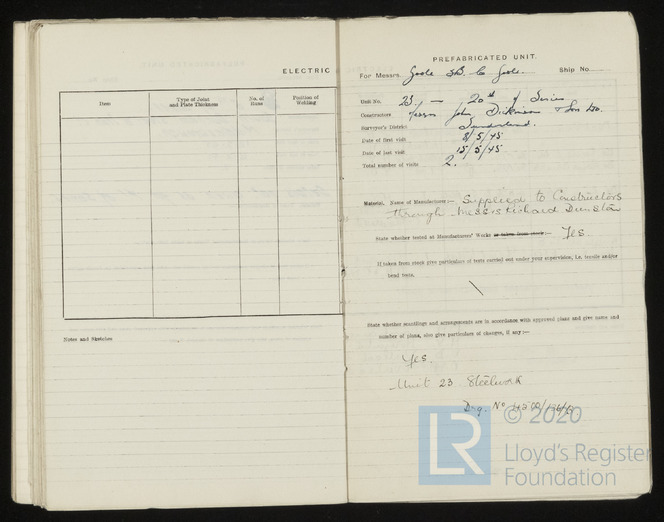 ELECTRIC
Item
Type of Joint and Plate Thickness
No. of Runs
Position of Welding
Notes and Sketches
PREFABRICATED UNIT.
For Messrs. Goole S.B. Co Goole. Ship No.
Unit No. 23. — 20th of Series
Constructors Messrs John Dickinson & Son Ltd.
Surveyor's District Sunderland.
Date of first visit 8/5/45
Date of last visit 15/5/45
Total number of visits 2.
Material. Name of Manufacturer:— Supplied to Constructors
through Messrs Richard Dunston
State whether tested at Manufacturers' Works or taken from stock:— Yes
If taken from stock give particulars of tests carried out under your supervision, i.e. tensile and/or
bend tests.
State whether scantlings and arrangements are in accordance with approved plans and give name and
number of plans, also give particulars of changes, if any:—
Yes.
Unit 23 Steelwork
Drg. No
© 2020
LR
Lloyd's Register
Foundation